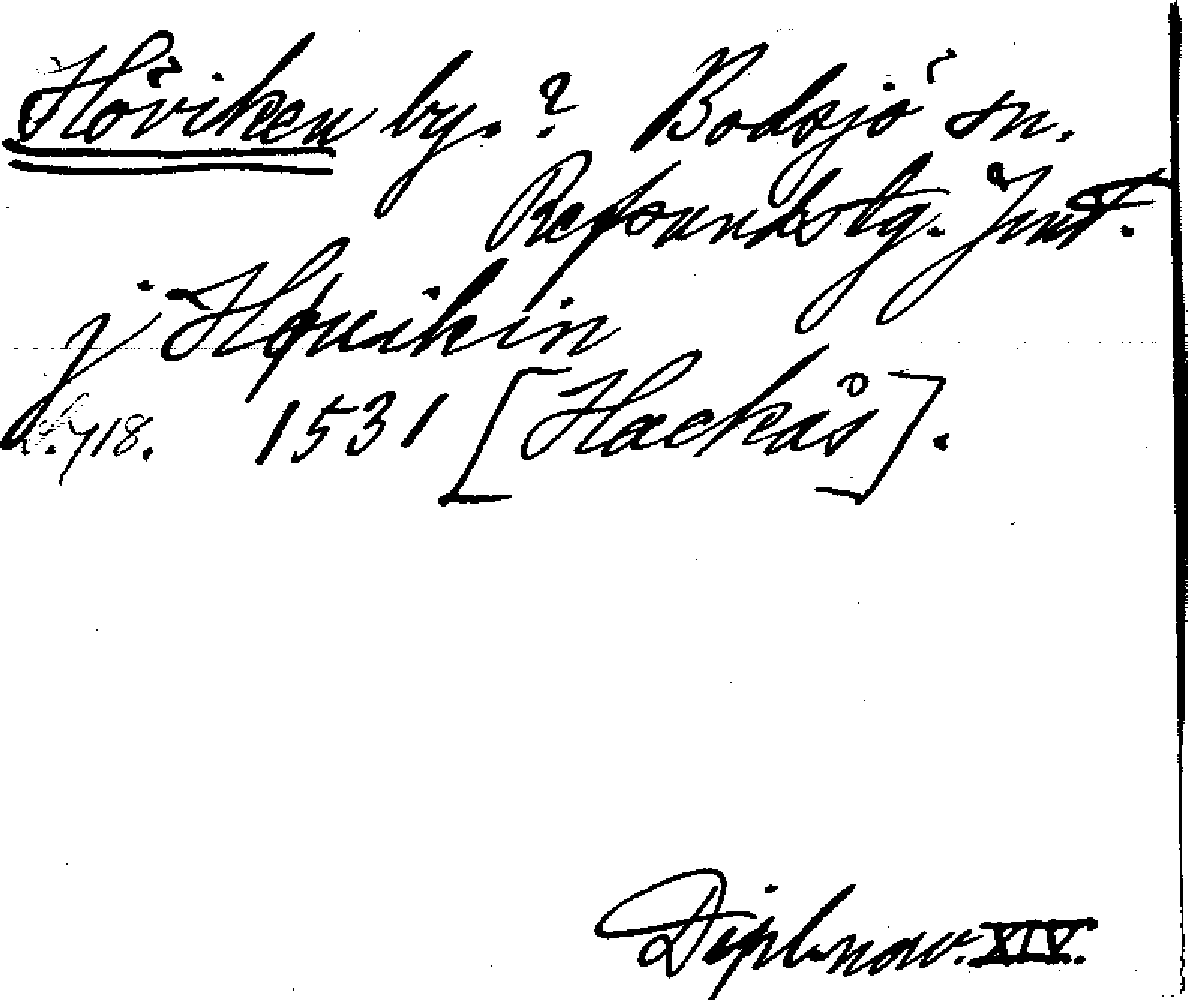 Höviken by. ? Bodsjö sn.
Refsundstg. Jmt.
j Høuikin
s. 718. 1531 [Hackås].
Dipl. norv. XIV.